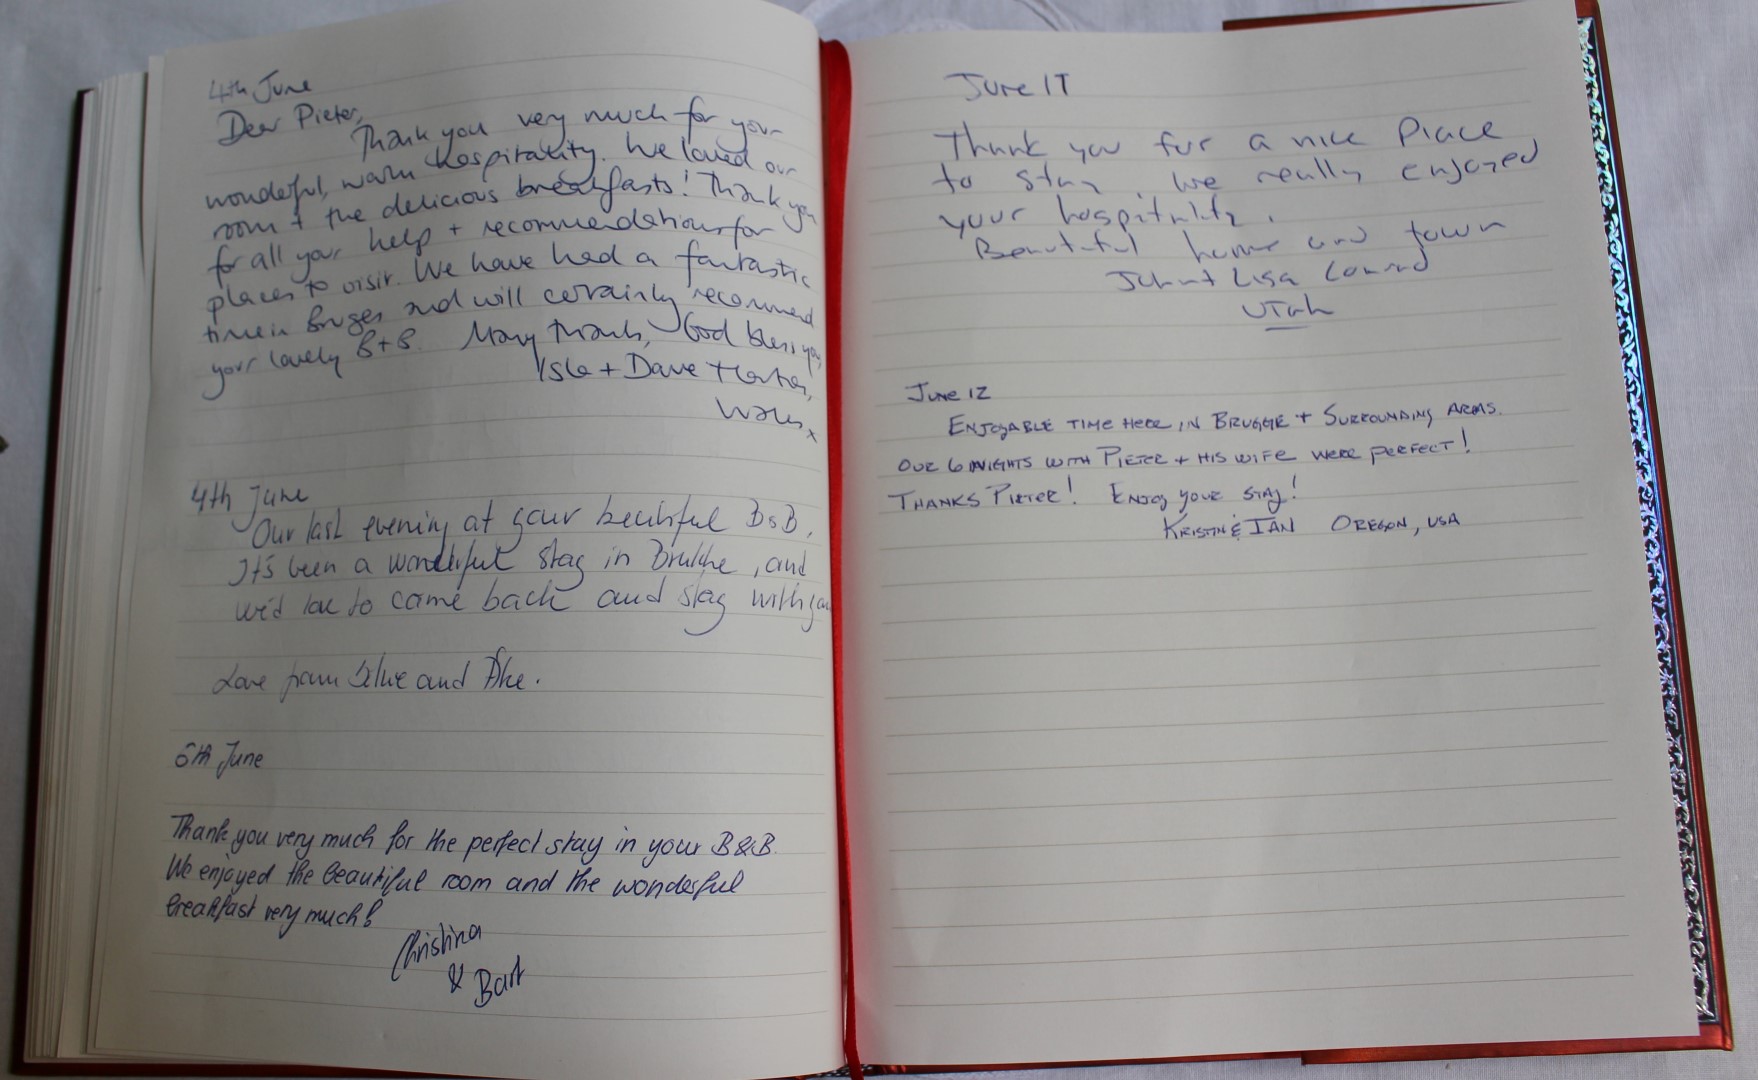 4th June
Dear Pieter,
Thank you very much for your
wonderful, warm hospitality. We loved our
room + the delicious breakfasts! Thank you
for all your help + recommendations for
places to visit. We have had a fantastic
time in Bruges and will certainly recommend
your lovely B+B. Many thanks, God bless you,
Isla + Dave
Wales, x
4th June
Our last evening at your beautiful B&B,
It's been a wonderful stay in , and
we'd love to come back and stay with you
Love from and
6th June
Thank you very much for the perfect stay in your B&B.
We enjoyed the beautiful room and the wonderful
breakfast very much!
Christina
& Bart
June
Thank you for a nice place
to stay. We really enjoyed
your hospitality.
Beautiful home and town
John + Lisa
Utah
June 12
ENJOYABLE TIME HERE IN BRUGGE + SURROUNDING AREAS.
OUR 6 NIGHTS WITH PIETER + HIS WIFE WERE PERFECT!
THANKS PIETER! ENJOY YOUR STAY!
KRISTIN & IAN OREGON, USA